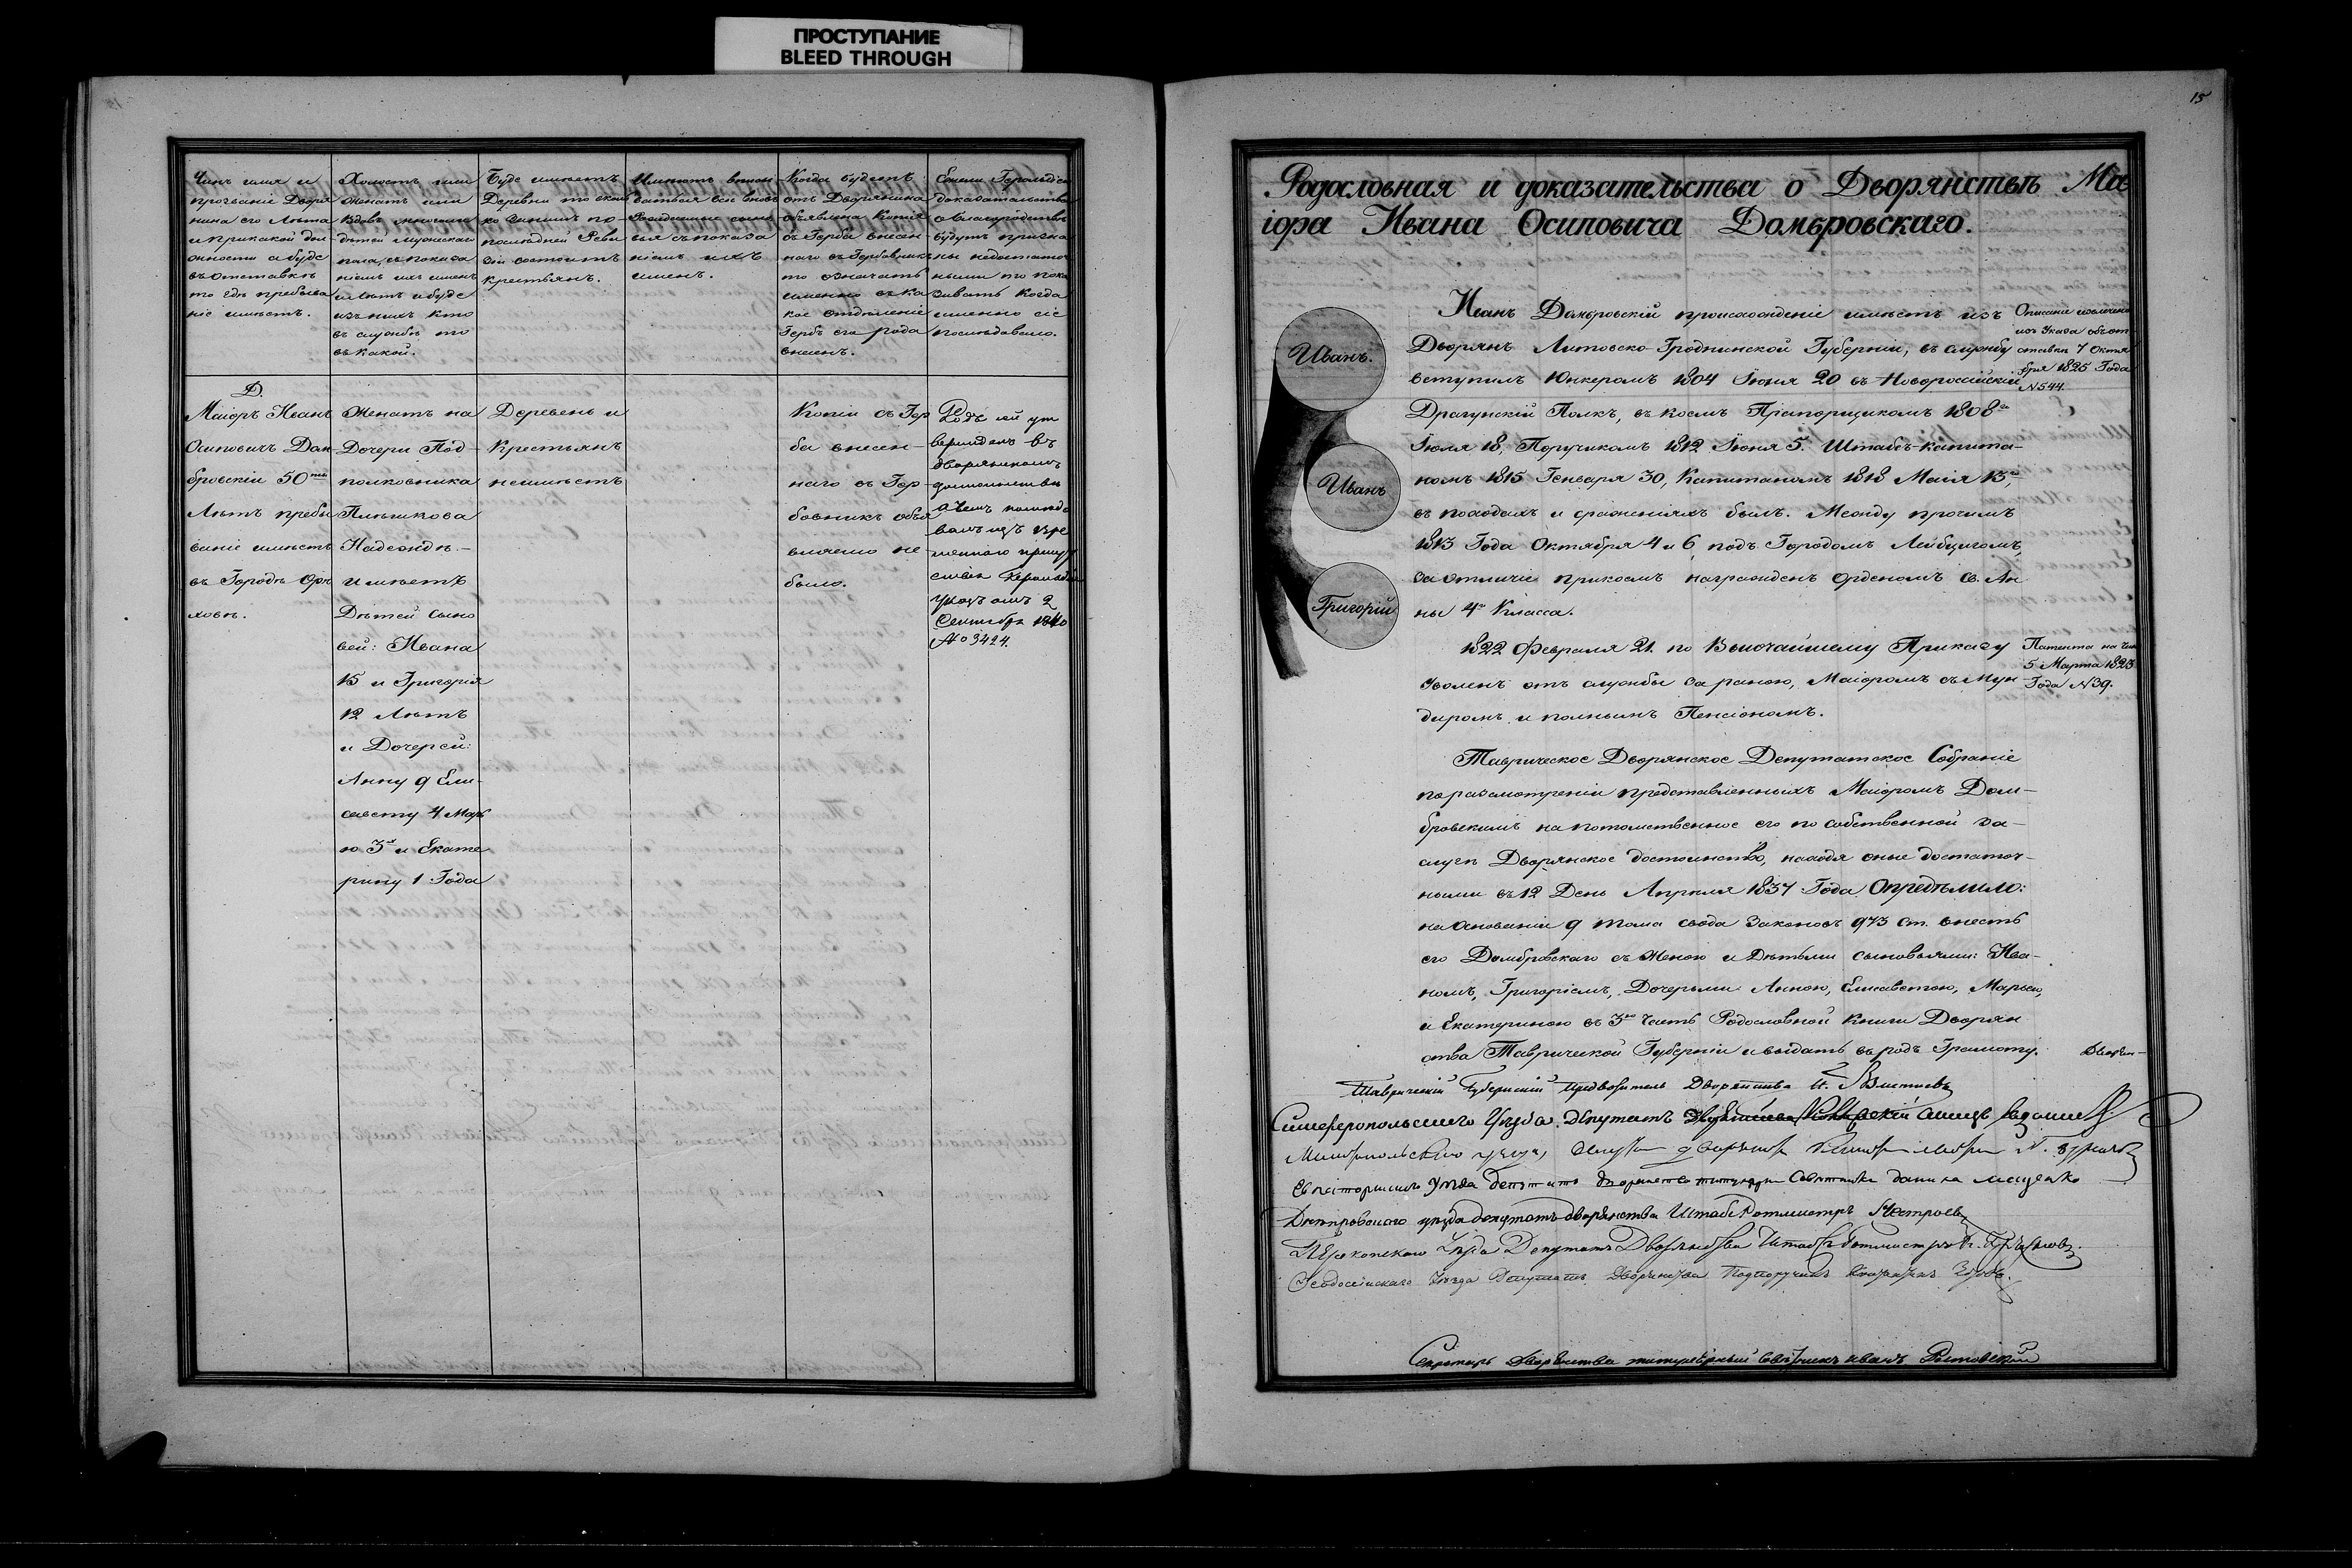 ПРОСТУПАНИЕ
BLEED THROUGH
Чинъ имя и
прозваніе Дворя
нина его лѣта
и прикакой дол
жности а буде
въ отставкѣ
то гдѣ пребыва
ніе имѣетъ.
Холостъ или
женатъ или
вдовъ
дѣтей мужескаго
пола, съ показа
ніемъ ихъ именъ
и лѣтъ и буде
изъ нихъ кто
въ службѣ то
въ какой.
Буде имѣетъ
Деревни то сколь
ко за нимъ по
послѣдней Реви
зіи состоитъ
крестьянъ.
Имѣютъ впи
сываться вновь
рождаемые сыно
вья съ показа
ніемъ ихъ
именъ.
Когда будетъ
отъ Дворянина
объявлена Копія
съ Герба внесен
наго въ Гербовникъ
то означать
именно въ ка
кое отдѣленіе
Гербъ его рода
внесенъ.
Ежели Герольдіею
доказательства
о благородствѣ
будутъ призна
ны недостаточ
ными то пока
зывать когда
именно сіе
послѣдовало.
Д.
Маіоръ Иванъ
Осиповичъ Дом
бровскій 50ти
Лѣтъ пребы
ваніе имѣетъ
въ Городѣ Орѣ
ховѣ.
Женатъ на
Дочери Под-
полковника
Плѣшкова
Надеждѣ.-
имѣетъ
Дѣтей сыно
вей: Ивана
15 и Григорія
12 Лѣтъ
и Дочерей:
Анну 9 Ели-
савету 4 Марь
ю 3х и Екате
рину 1 Года
Деревень и
Крестьянъ
неимѣетъ
Копіи съ Гер
ба внесен-
наго въ Гер-
бовникъ объя
влено не
было.
Родъ сей ут
вержденъ въ
дворянскомъ
достоинствѣ
о чемъ послѣдо
валъ изъ Вре
меннаго присут
ствія Герольдіи
указъ отъ 2
Сентября 1840
№ 3424.
15
Родословная и доказательства о Дворянствѣ Ма
іора Ивана Осиповича Домбровскаго.
Иванъ.
Иванъ
Григорій
Иванъ Домбровскій происхожденіе имѣетъ изъ
Дворянъ Литовско-Гродненской Губерніи, въ службу
вступилъ Юнкеромъ 1804 Іюня 20 въ Новороссійскій
Драгунскій Полкъ, въ коемъ Прапорщикомъ 1808го
Іюля 18, Поручикомъ 1812 Іюня 5. Штабъ-капита-
номъ 1815 Генваря 30, Капитаномъ 1818 Маія 13го,
въ походахъ и сраженіяхъ былъ. Между прочимъ
1813 Года Октября 4 и 6 подъ Городомъ Лейбцигомъ,
за отличіе прикоемъ награжденъ Орденомъ Св. Ан
ны 4го Класса.
Описаніе извлечено
изъ Указа объ от
ставкѣ 7 Октя
бря 1825 Года
№ 544.
1822 Февраля 21 по Высочайшему Приказу
уволенъ отъ службы за раною, Маіоромъ съ Мун
диромъ и полнымъ Пенсіономъ.
Патента на Чинъ
5 Марта 1823
Года № 39.
Таврическое Дворянское Депутатское Собраніе
поразсмотреніи представленныхъ Маіоромъ Дом-
бровскимъ на потомственное его по собственной за-
слугѣ Дворянское достоинство, находя оные достаточ-
ными въ 12 День Апрѣля 1837 Года Опредѣлило:
на основаніи 9 тома свода Законовъ 973 ст. внесть
его Домбровскаго съ Женою и Дѣтьми сыновьями: Ива-
номъ, Григоріемъ, Дочерьми Анною, Елисаветою, Марьею,
и Екатериною въ 3ю Часть Родословной Книги Дворян
ства Таврической Губерніи и выдать въ родъ Грамоту.
Дворян-
Таврическій Губернскій Предводитель Дворянства
Симферопольскаго Уѣзда Депутатъ
Мелитопольскаго уѣзда
Евпаторійскаго Уѣзда Депутатъ Дворянства титулярн Совѣтникъ
Днѣпровскаго уѣзда депутатъ дворянства Штабсъ Ротмистръ
Перекопскаго Уѣзда Депутатъ Дворянства Штабсъ Ротмистръ
Ѳеодосійскаго Уѣзда Депутатъ Дворянства Подпоручикъ
Секретарь Дворянства титулярный Совѣтникъ Иванъ